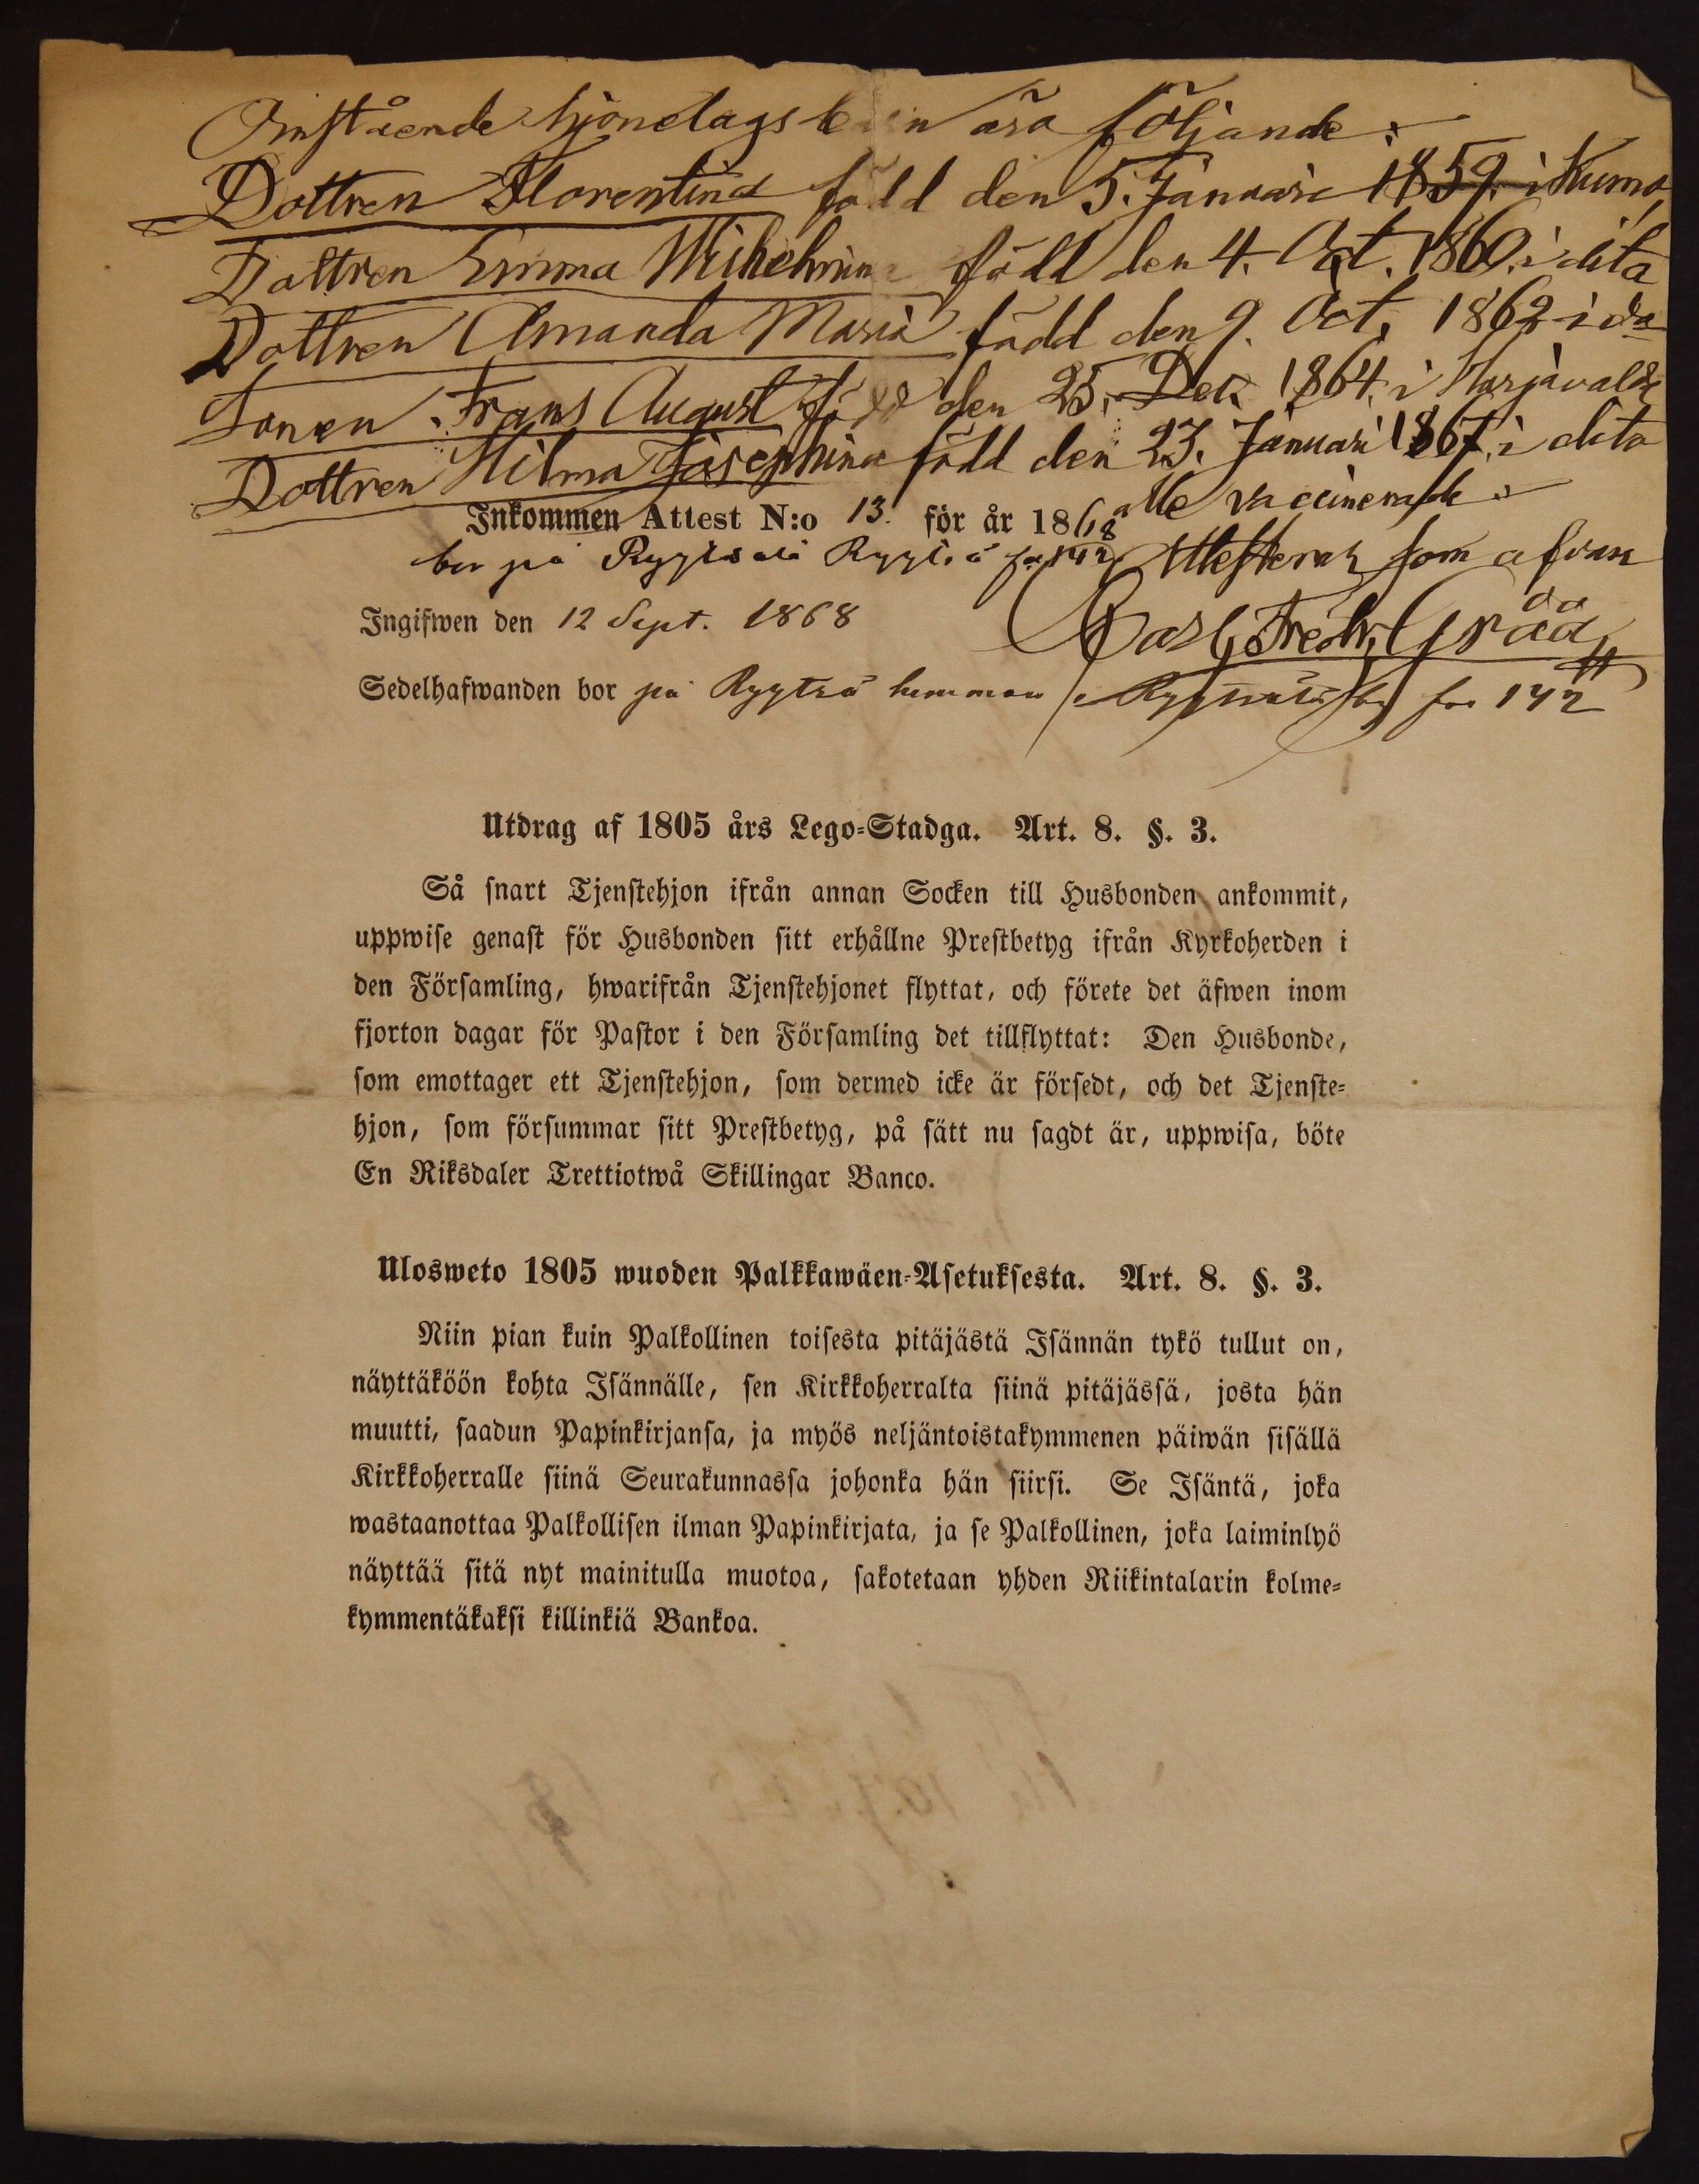 Omstående hjonelags barn äro följande:
Dottren Florentina född den 5. Januari 1859. i Kumo,
Dottren Emma Wilhelmina född den 4. Oct. 1860. i dito
Dottren Amanda Maria född den 9. Oct. 1862 i do
Sonen Frans August född den 25. Dec. 1864. i Harjavalda
Dottren Hilma Josephina född den 23. Januari 1867. i dito
alle vaccinerade.
Inkommen Attest N:o 13. för år 1868
bor på Attesterar som ofvan
Ingifwen den 12 Sept. 1868 Carl Fredr. Gråå
Sedelhafwanden bor på hemman 142
Utdrag af 1805 års Lego-Stadga. Art. 8. §. 3.
Så snart Tjenstehjon ifrån annan Socken till Husbonden ankommit,
uppwise genast för Husbonden sitt erhållne Prestbetyg ifrån Kyrkoherden i
den Församling, hwarifrån Tjenstehjonet flyttat, och förete det äfwen inom
fjorton dagar för Pastor i den Församling det tillflyttat: Den Husbonde,
som emottager ett Tjenstehjon, som dermed icke är försedt, och det Tjenste-
hjon, som försummar sitt Prestbetyg, på sätt nu sagdt är, uppwisa, böte
En Riksdaler Trettiotwå Skillingar Banco.
Ulosweto 1805 wuoden Palkkawäen-Asetuksesta. Art. 8. §. 3.
Niin pian kuin Palkollinen toisesta pitäjästä Isännän tykö tullut on,
näyttäköön kohta Isännälle, sen Kirkkoherralta siinä pitäjässä, josta hän
muutti, saadun Papinkirjansa, ja myös neljäntoistakymmenen päiwän sisällä
Kirkkoherralle siinä Seurakunnassa johonka hän siirsi. Se Isäntä, joka
wastaanottaa Palkollisen ilman Papinkirjata, ja se Palkollinen, joka laiminlyö
näyttää sitä nyt mainitulla muotoa, sakotetaan yhden Riikintalarin kolme-
kymmentäkaksi killinkiä Bankoa.